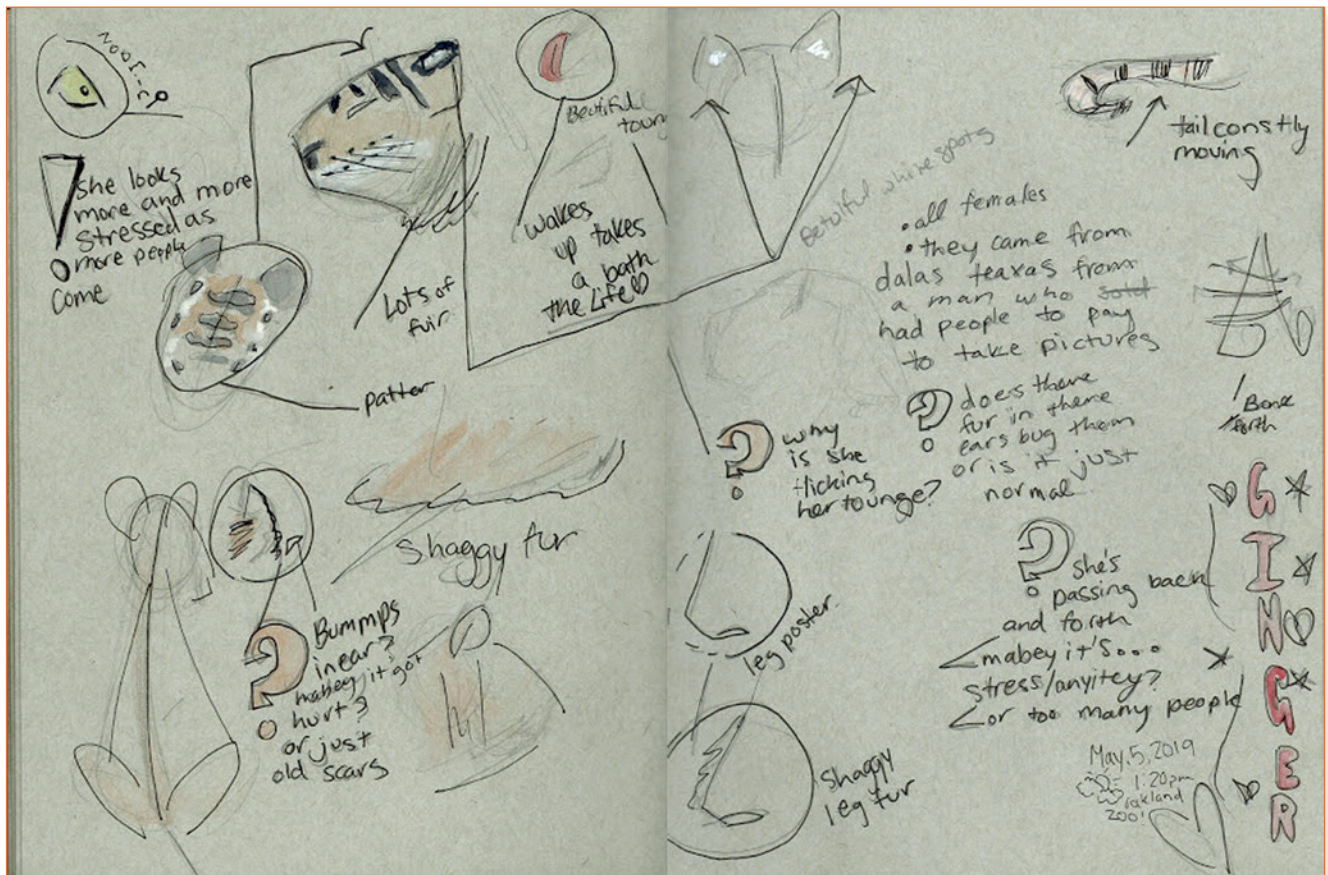 ZOOF.ing
She looks
more and more
stressed as
more people
come
Lots of
fuir
patter
Beutiful
toung
wakes
up takes
a bath
the Life
shaggy fur
Bummps
inear?
mabey it got
hurt?
or just
old scars
Betuiful whine spots
tail constly
moving
•all females
•they came from
dalas teaxas from
a man who sold
had people to pay
to take pictures
? does there
fur in there
ears bug them
or is it just
normal
? why
is she
flicking
her tounge?
leg poster
shaggy
leg fur
forth
? she's
passing back
and forth
mabey it's...
stress/anyitey?
or too many people
May.5,2019
1:20pm
oakland
ZOO!
GINGER